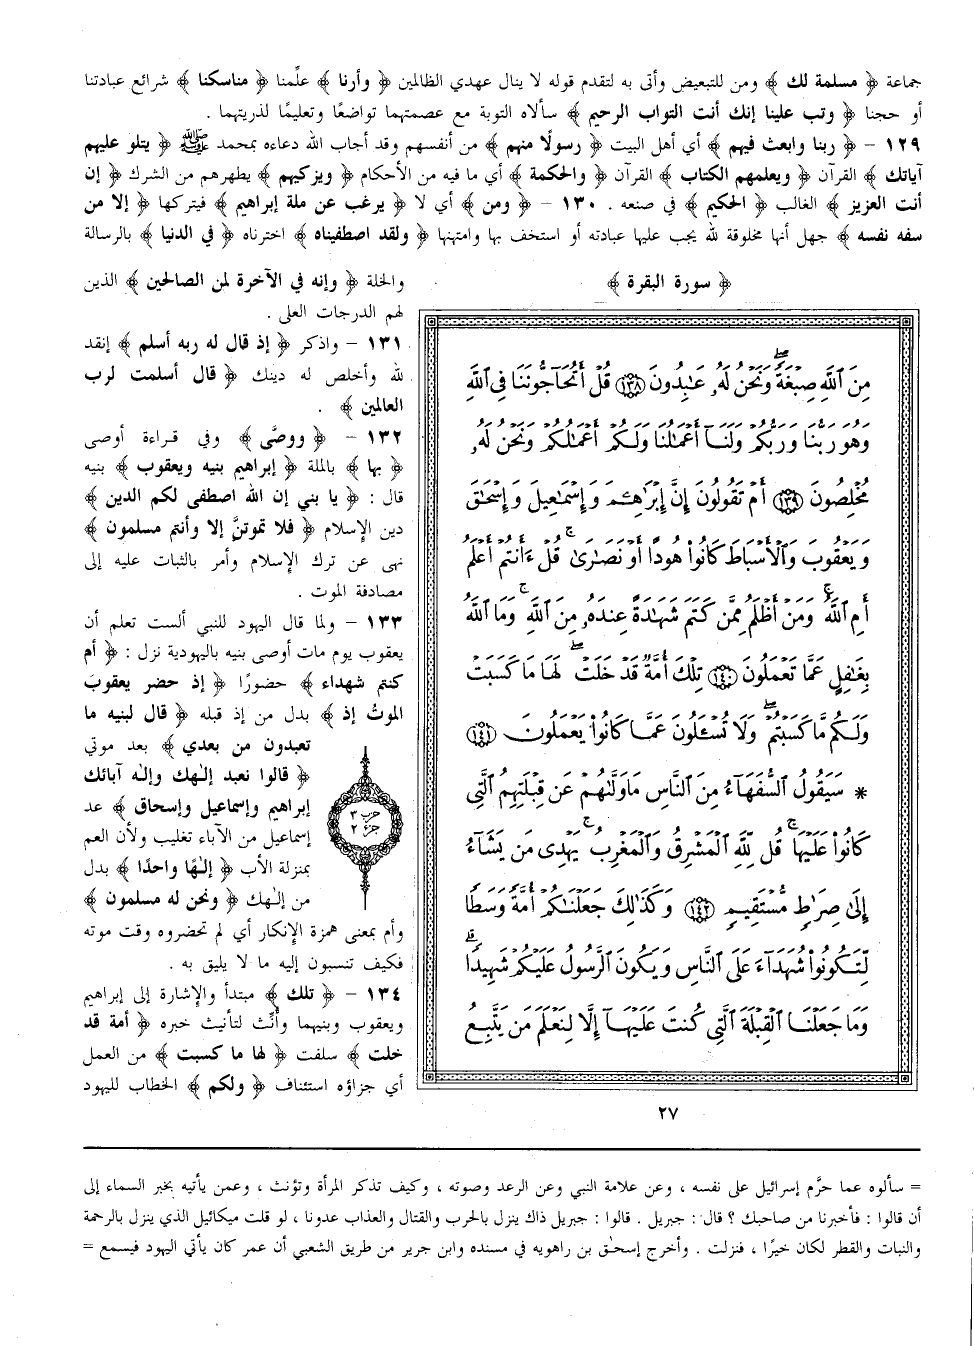 جماعة ﴿ مسلمة لك ﴾ ومن للتبعيض وأتى به لتقدم قوله لا ينال عهدي الظالمين ﴿ وأرنا ﴾ علِّمنا ﴿ مناسكنا ﴾ شرائع عبادتنا
أو حجنا ﴿ وتب علينا إنك أنت التواب الرحيم ﴾ سألاه التوبة مع عصمتهما تواضعًا وتعليمًا لذريتهما .
١٢٩ - ﴿ ربنا وابعث فيهم ﴾ أي أهل البيت ﴿ رسولًا منهم ﴾ من أنفسهم وقد أجاب الله دعاءه بمحمد ﷺ ﴿ يتلو عليهم
آياتك ﴾ القرآن ﴿ ويعلمهم الكتاب ﴾ القرآن ﴿ والحكمة ﴾ أي ما فيه من الأحكام ﴿ ويزكيهم ﴾ يطهرهم من الشرك ﴿ إن
أنت العزيز ﴾ الغالب ﴿ الحكيم ﴾ في صنعه . ١٣٠ - ﴿ ومن ﴾ أي لا ﴿ يرغب عن ملة إبراهيم ﴾ فيتركها ﴿ إلا من
سفه نفسه ﴾ جهل أنها مخلوقة لله يجب عليها عبادته أو استخف بها وامتهنها ﴿ ولقد اصطفيناه ﴾ اخترناه ﴿ في الدنيا ﴾ بالرسالة
والخلة ﴿ وإنه في الآخرة لمن الصالحين ﴾ الذين
لهم الدرجات العلى .
١٣١ - واذكر ﴿ إذ قال له ربه أسلم ﴾ إنقد
لله وأخلص له دينك ﴿ قال أسلمت لرب
العالمين ﴾ .
١٣٢ - ﴿ ووصَّى ﴾ وفي قراءة أوصى
﴿ بها ﴾ بالملة ﴿ إبراهيم بنيه ويعقوب ﴾ بنيه
قال : ﴿ يا بني إن الله اصطفى لكم الدين ﴾
دين الإسلام ﴿ فلا تموتنَّ إلا وأنتم مسلمون ﴾
نهى عن ترك الإسلام وأمر بالثبات عليه إلى
مصادفة الموت .
١٣٣ - ولما قال اليهود للنبي ألست تعلم أن
يعقوب يوم مات أوصى بنيه باليهودية نزل : ﴿ أم
كنتم شهداء ﴾ حضورًا ﴿ إذ حضر يعقوبَ
الموتُ إذ ﴾ بدل من إذ قبله ﴿ قال لبنيه ما
تعبدون من بعدي ﴾ بعد موتي
﴿ قالوا نعبد إلـٰهك وإلـٰه آبائك
إبراهيم وإسماعيل وإسحاق ﴾ عد
إسماعيل من الآباء تغليب ولأن العم
بمنزلة الأب ﴿ إلـٰهًا واحدًا ﴾ بدل
من إلـٰهك ﴿ ونحن له مسلمون ﴾
وأم بمعنى همزة الإنكار أي لم تحضروه وقت موته
فكيف تنسبون إليه ما لا يليق به .
١٣٤ - ﴿ تلك ﴾ مبتدأ والإشارة إلى إبراهيم
ويعقوب وبنيهما وأُنِّث لتأنيث خبره ﴿ أمة قد
خلت ﴾ سلفت ﴿ لها ما كسبت ﴾ من العمل
أي جزاؤه استئناف ﴿ ولكم ﴾ الخطاب لليهود
حزب ٣
جزء ٢
﴿ سورة البقرة ﴾
مِنَ ٱللَّهِ صِبْغَةً ۖ وَنَحْنُ لَهُۥ عَـٰبِدُونَ ١٣٨ قُلْ أَتُحَآجُّونَنَا فِى ٱللَّهِ
وَهُوَ رَبُّنَا وَرَبُّكُمْ وَلَنَآ أَعْمَـٰلُنَا وَلَكُمْ أَعْمَـٰلُكُمْ وَنَحْنُ لَهُۥ
مُخْلِصُونَ ١٣٩ أَمْ تَقُولُونَ إِنَّ إِبْرَٰهِـۧمَ وَإِسْمَـٰعِيلَ وَإِسْحَـٰقَ
وَيَعْقُوبَ وَٱلْأَسْبَاطَ كَانُوا۟ هُودًا أَوْ نَصَـٰرَىٰ ۗ قُلْ ءَأَنتُمْ أَعْلَمُ
أَمِ ٱللَّهُ ۗ وَمَنْ أَظْلَمُ مِمَّن كَتَمَ شَهَـٰدَةً عِندَهُۥ مِنَ ٱللَّهِ ۗ وَمَا ٱللَّهُ
بِغَـٰفِلٍ عَمَّا تَعْمَلُونَ ١٤٠ تِلْكَ أُمَّةٌ قَدْ خَلَتْ ۖ لَهَا مَا كَسَبَتْ
وَلَكُم مَّا كَسَبْتُمْ ۖ وَلَا تُسْـَٔلُونَ عَمَّا كَانُوا۟ يَعْمَلُونَ ١٤١
* سَيَقُولُ ٱلسُّفَهَآءُ مِنَ ٱلنَّاسِ مَا وَلَّىٰهُمْ عَن قِبْلَتِهِمُ ٱلَّتِى
كَانُوا۟ عَلَيْهَا ۚ قُل لِّلَّهِ ٱلْمَشْرِقُ وَٱلْمَغْرِبُ ۚ يَهْدِى مَن يَشَآءُ
إِلَىٰ صِرَٰطٍ مُّسْتَقِيمٍ ١٤٢ وَكَذَٰلِكَ جَعَلْنَـٰكُمْ أُمَّةً وَسَطًا
لِّتَكُونُوا۟ شُهَدَآءَ عَلَى ٱلنَّاسِ وَيَكُونَ ٱلرَّسُولُ عَلَيْكُمْ شَهِيدًا ۗ
وَمَا جَعَلْنَا ٱلْقِبْلَةَ ٱلَّتِى كُنتَ عَلَيْهَآ إِلَّا لِنَعْلَمَ مَن يَتَّبِعُ
٢٧
= سألوه عما حرَّم إسرائيل على نفسه ، وعن علامة النبي وعن الرعد وصوته ، وكيف تذكر المرأة وتؤنث ، وعمن يأتيه بخبر السماء إلى
أن قالوا : فأخبرنا من صاحبك ؟ قال : جبريل . قالوا : جبريل ذاك ينزل بالحرب والقتال والعذاب عدونا ، لو قلت ميكائيل الذي ينزل بالرحمة
والنبات والقطر لكان خيرًا ، فنزلت . وأخرج إسحـٰق بن راهويه في مسنده وابن جرير من طريق الشعبي أن عمر كان يأتي اليهود فيسمع =